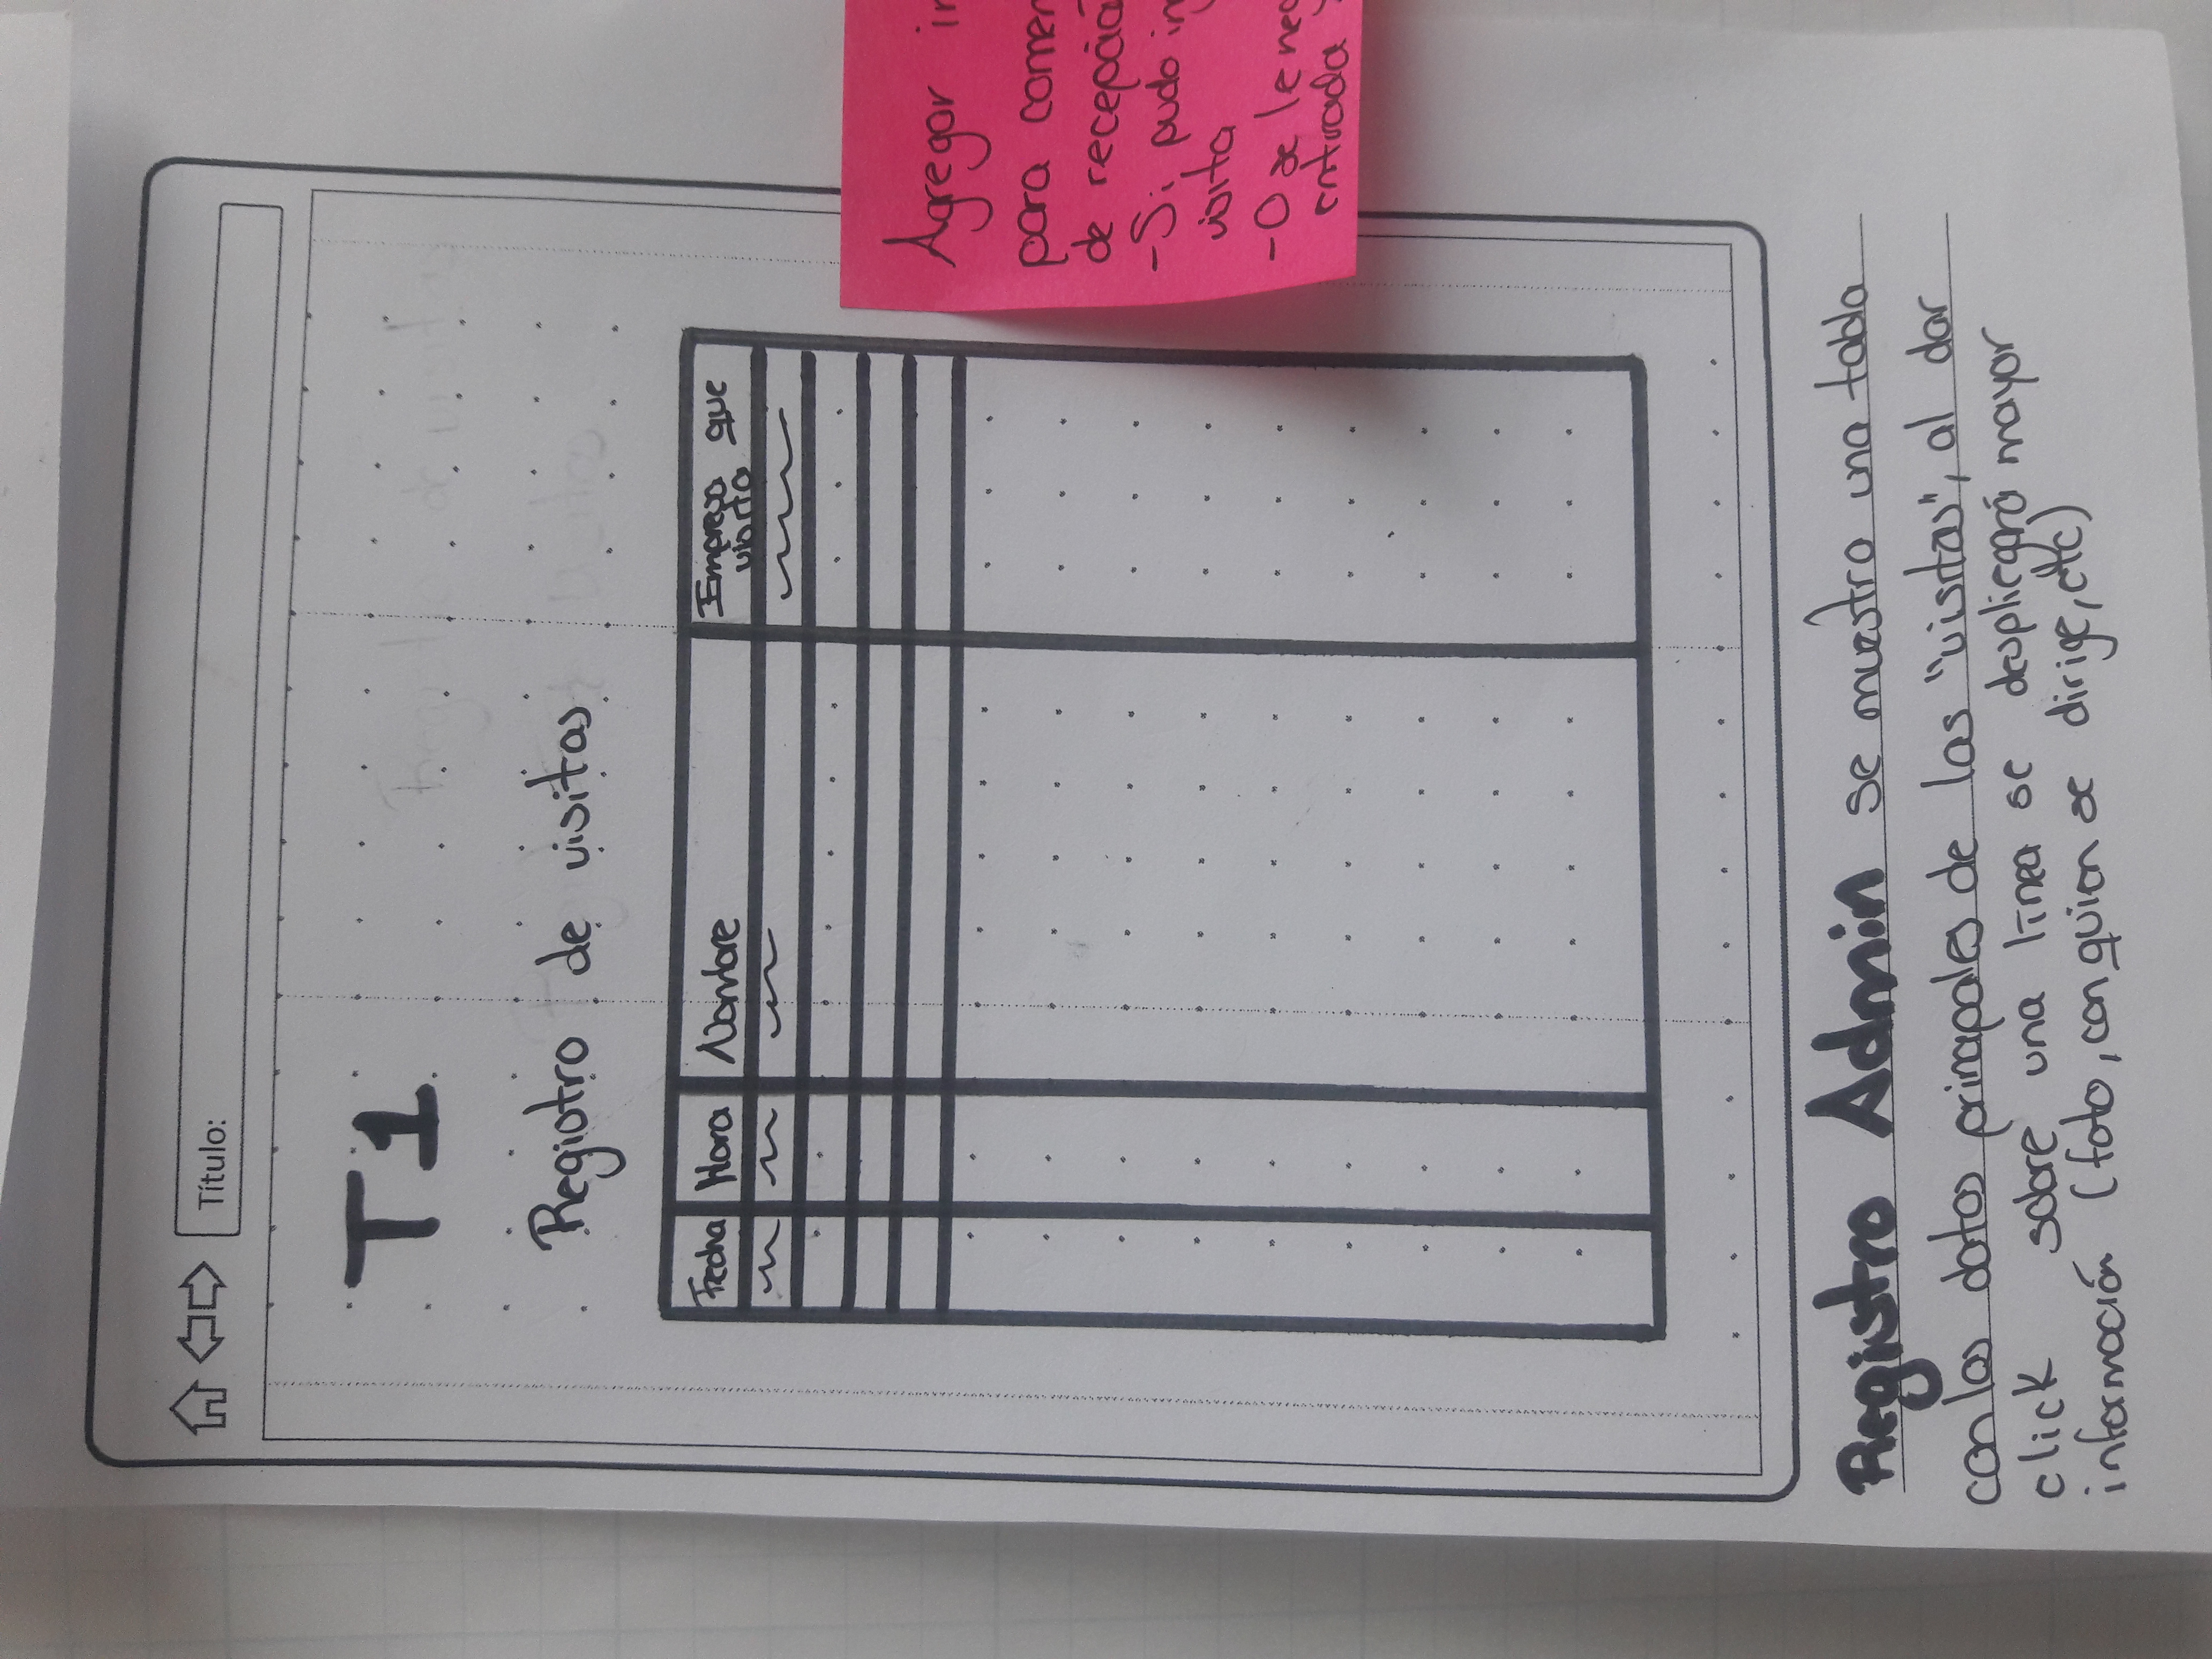 Título:
T1
Registro de visitas
Fecha Hora Nombre Empresa que
visita
Agregar
para
de recepció
-Si pudo
visita
-O se le
entrada
Registro Admin se muestra una tabla
con los datos principales de las "visitas", al dar
click sobre una línea se desplegará mayor
información (foto, con quien se dirige, etc)